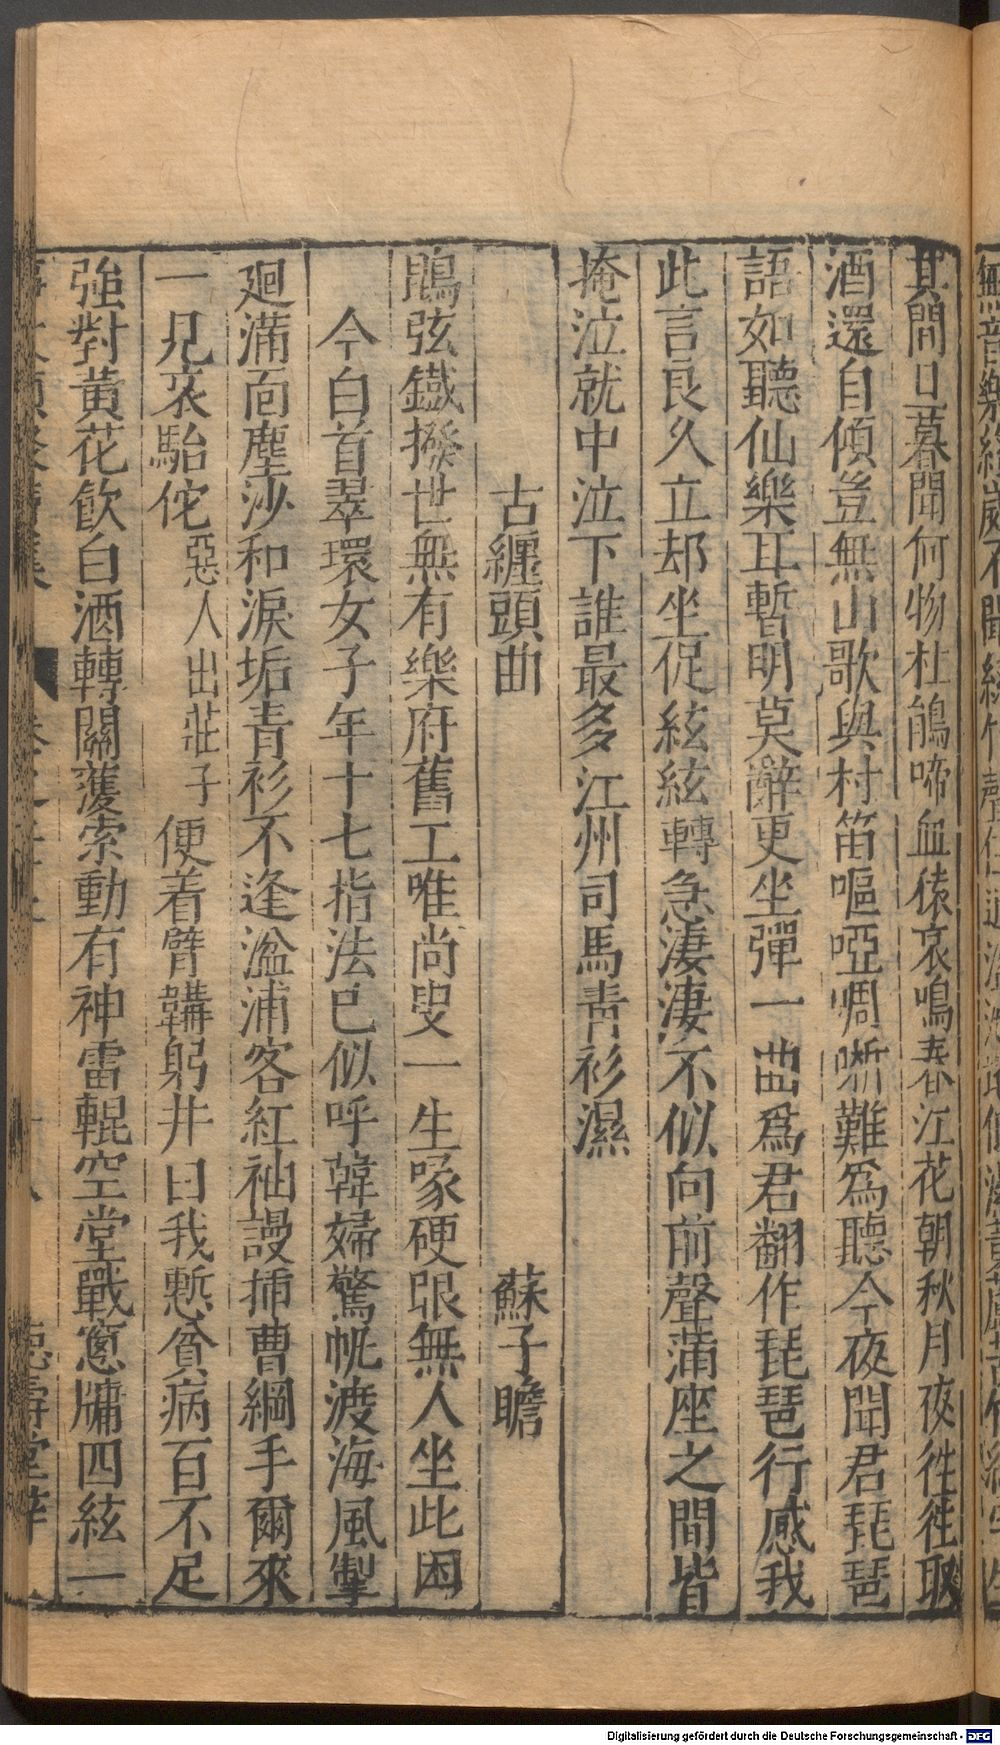 其間旦暮聞何物杜鵑啼血猿哀鳴春江花朝秋月夜徃徃取
酒還自傾豈無山歌與村笛嘔啞啁哳難爲聽今夜聞君琵琶
語如聽仙樂耳暫明莫辭更坐彈一曲爲君翻作琵琶行感我
此言良久立却坐促絃絃轉急淒淒不似向前聲蒲座之間皆
掩泣就中泣下誰最多江州司馬靑衫濕
古纏頭曲 蘇子瞻
鵾弦鐵撥世無有樂府舊工唯尚叟一生喙硬眼無人坐此困
今白首翠環女子年十七指法已似呼韓婦驚帆渡海風掣
廻蒲面塵沙和淚垢青衫不逢湓浦客紅袖謾揷曹綱手爾來
一見哀駘佗惡人出莊子便着臂韝躬井臼我慙貧病百不足
強對黃花飲白酒轉關濩索動有神雷輥空堂戰窻牖四絃一
Digitalisierung gefördert durch die Deutsche Forschungsgemeinschaft - DFG